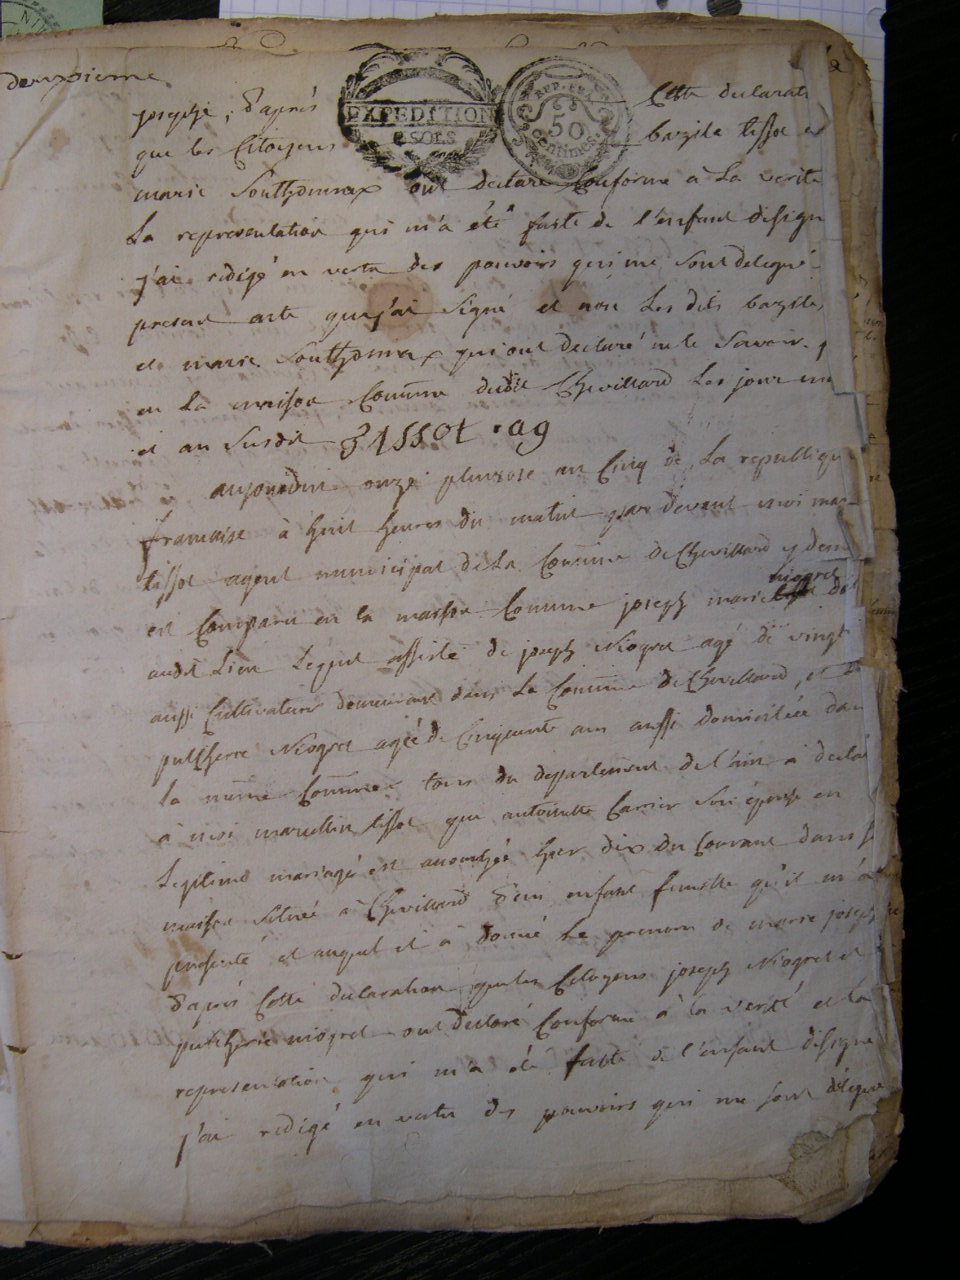 deuxsieme
josephe, d'après Cette declarat
EXPEDITION
2 SOLS
REP. FRA.
50
Centimes
que les Citoyens bazile tissot e
marie Southonnax ont declaré Conforme a La verité
La representation qui m'a été faite de l'enfant designé
j'ai redigé en vertu des pouvoirs qui me sont delegué
present acte que j'ai Signé et non Les dits bazile
et marie Southonnax qui ont declaré ne le Savoir
en La maison Comme dudit Chevillard Les jour
et an Susdit tISSOt . ag
aujourdhui onze pluviose an Cinq de La republiqu
francaise à huit heures du matin par devant moi mar
tissot agent municipal de La Comune de Chevillard
est Comparu en la maison Commune joseph marie niogret
audit Lieu Lequel assisté de joseph Niogret agé de vingt
aussi Cultivateur demeurant dans La Comune de Chevillard, et de
pulcherie Niogret agée de Cinquante ans aussi domiciliée dan
la même Commune tous du departement de l'ain a declar
à moi marcelin tissot que antoinette Carrier Son épouse en
Legitime mariage est accouchée hier dix du Courant dans s
maison située a Chevillard d'un enfant femelle qu'il m'a
presenté et auquel il a donné Le prenom de marie joseph
d'après Cette declaration que les Citoyens joseph Niogret et
pulcherie niogret ont declaré Conforme à la verité et la
representation qui m'a été faite de l'enfant designé
j'ai redigé en vertu des pouvoirs qui me sont délégué